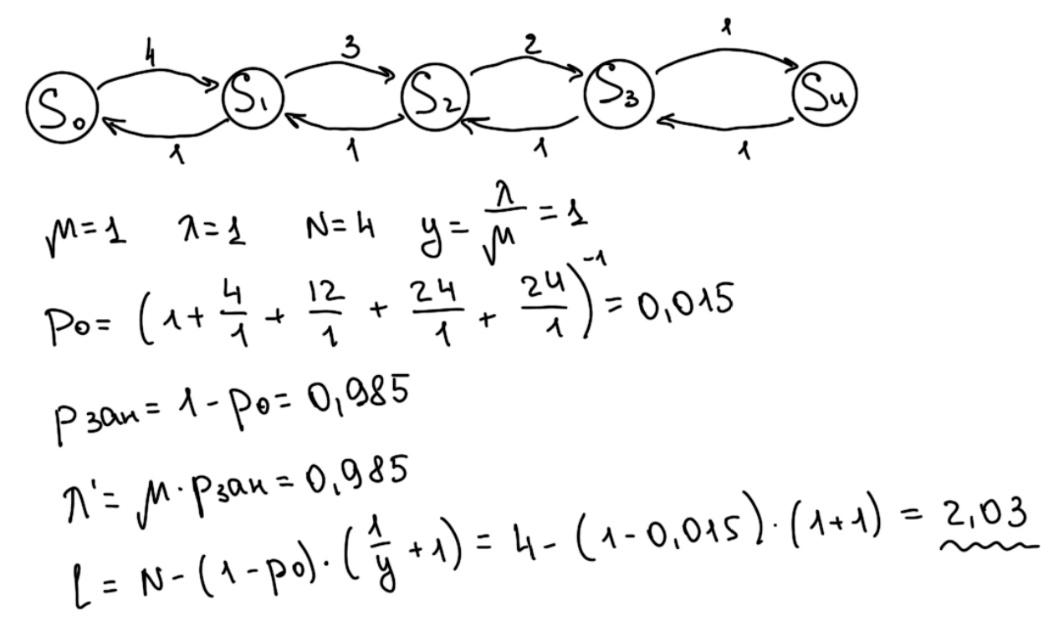 4 3 2 1
S₀ S₁ S₂ S₃ S₄
1 1 1 1
μ=1 λ=1 N=4 y=λ/μ=1
p₀=(1+4/1+12/1+24/1+24/1)⁻¹=0,015
pзан=1-p₀=0,985
λ'=μ·pзан=0,985
L=N-(1-p₀)·(1/y+1)=4-(1-0,015)·(1+1)=2,03